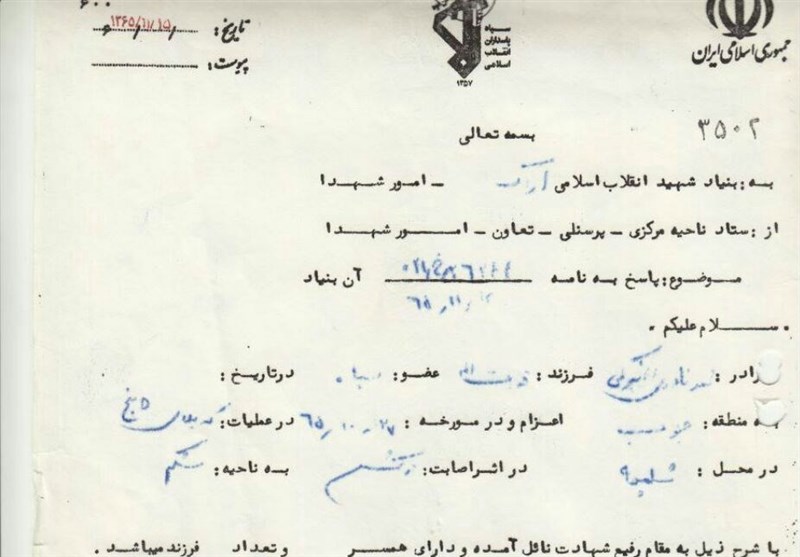 جمهوری اسلامی ایران
سپاه
پاسداران
انقلاب
اسلامی
۱۳۵۷
تاریخ: ۱۳۶۵/۱۱/۱۵
پیوست:
۳۵۰۲
بسمه تعالی
به: بنیاد شهید انقلاب اسلامی اراک _ امور شهدا
از: ستاد ناحیه مرکزی _ پرسنلی _ تعاون _ امور شهدا
موضوع: پاسخ به نامه آن بنیاد
سلام علیکم .
فرزند: عضو: سپاه در تاریخ:
به منطقه: جنوب اعزام و در مورخه: ۲۷-۱۰-۶۵ در عملیات: کربلای ۵
در محل: شلمچه در اثر اصابت: ترکش به ناحیه: شکم
با شرح ذیل به مقام رفیع شهادت نائل آمده و دارای همسر و تعداد فرزند میباشد .